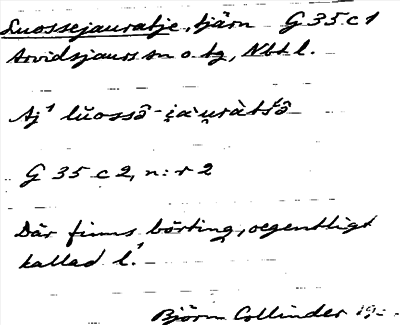 Luossejauratje, tjärn G 35 c 1
Arvidsjaurs sn o. tg, Nbt l.
Aj¹
G 35 c 2, n:r 2
Där finns börting, oegentligt
kallad l.¹
Björn Collinder 19